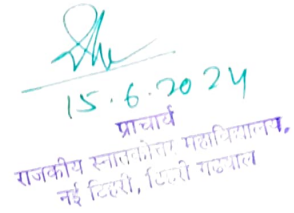 15.6.2024
प्राचार्य
राजकीय स्नातकोत्तर महाविद्यालय,
नई टिहरी, टिहरी गढ़वाल